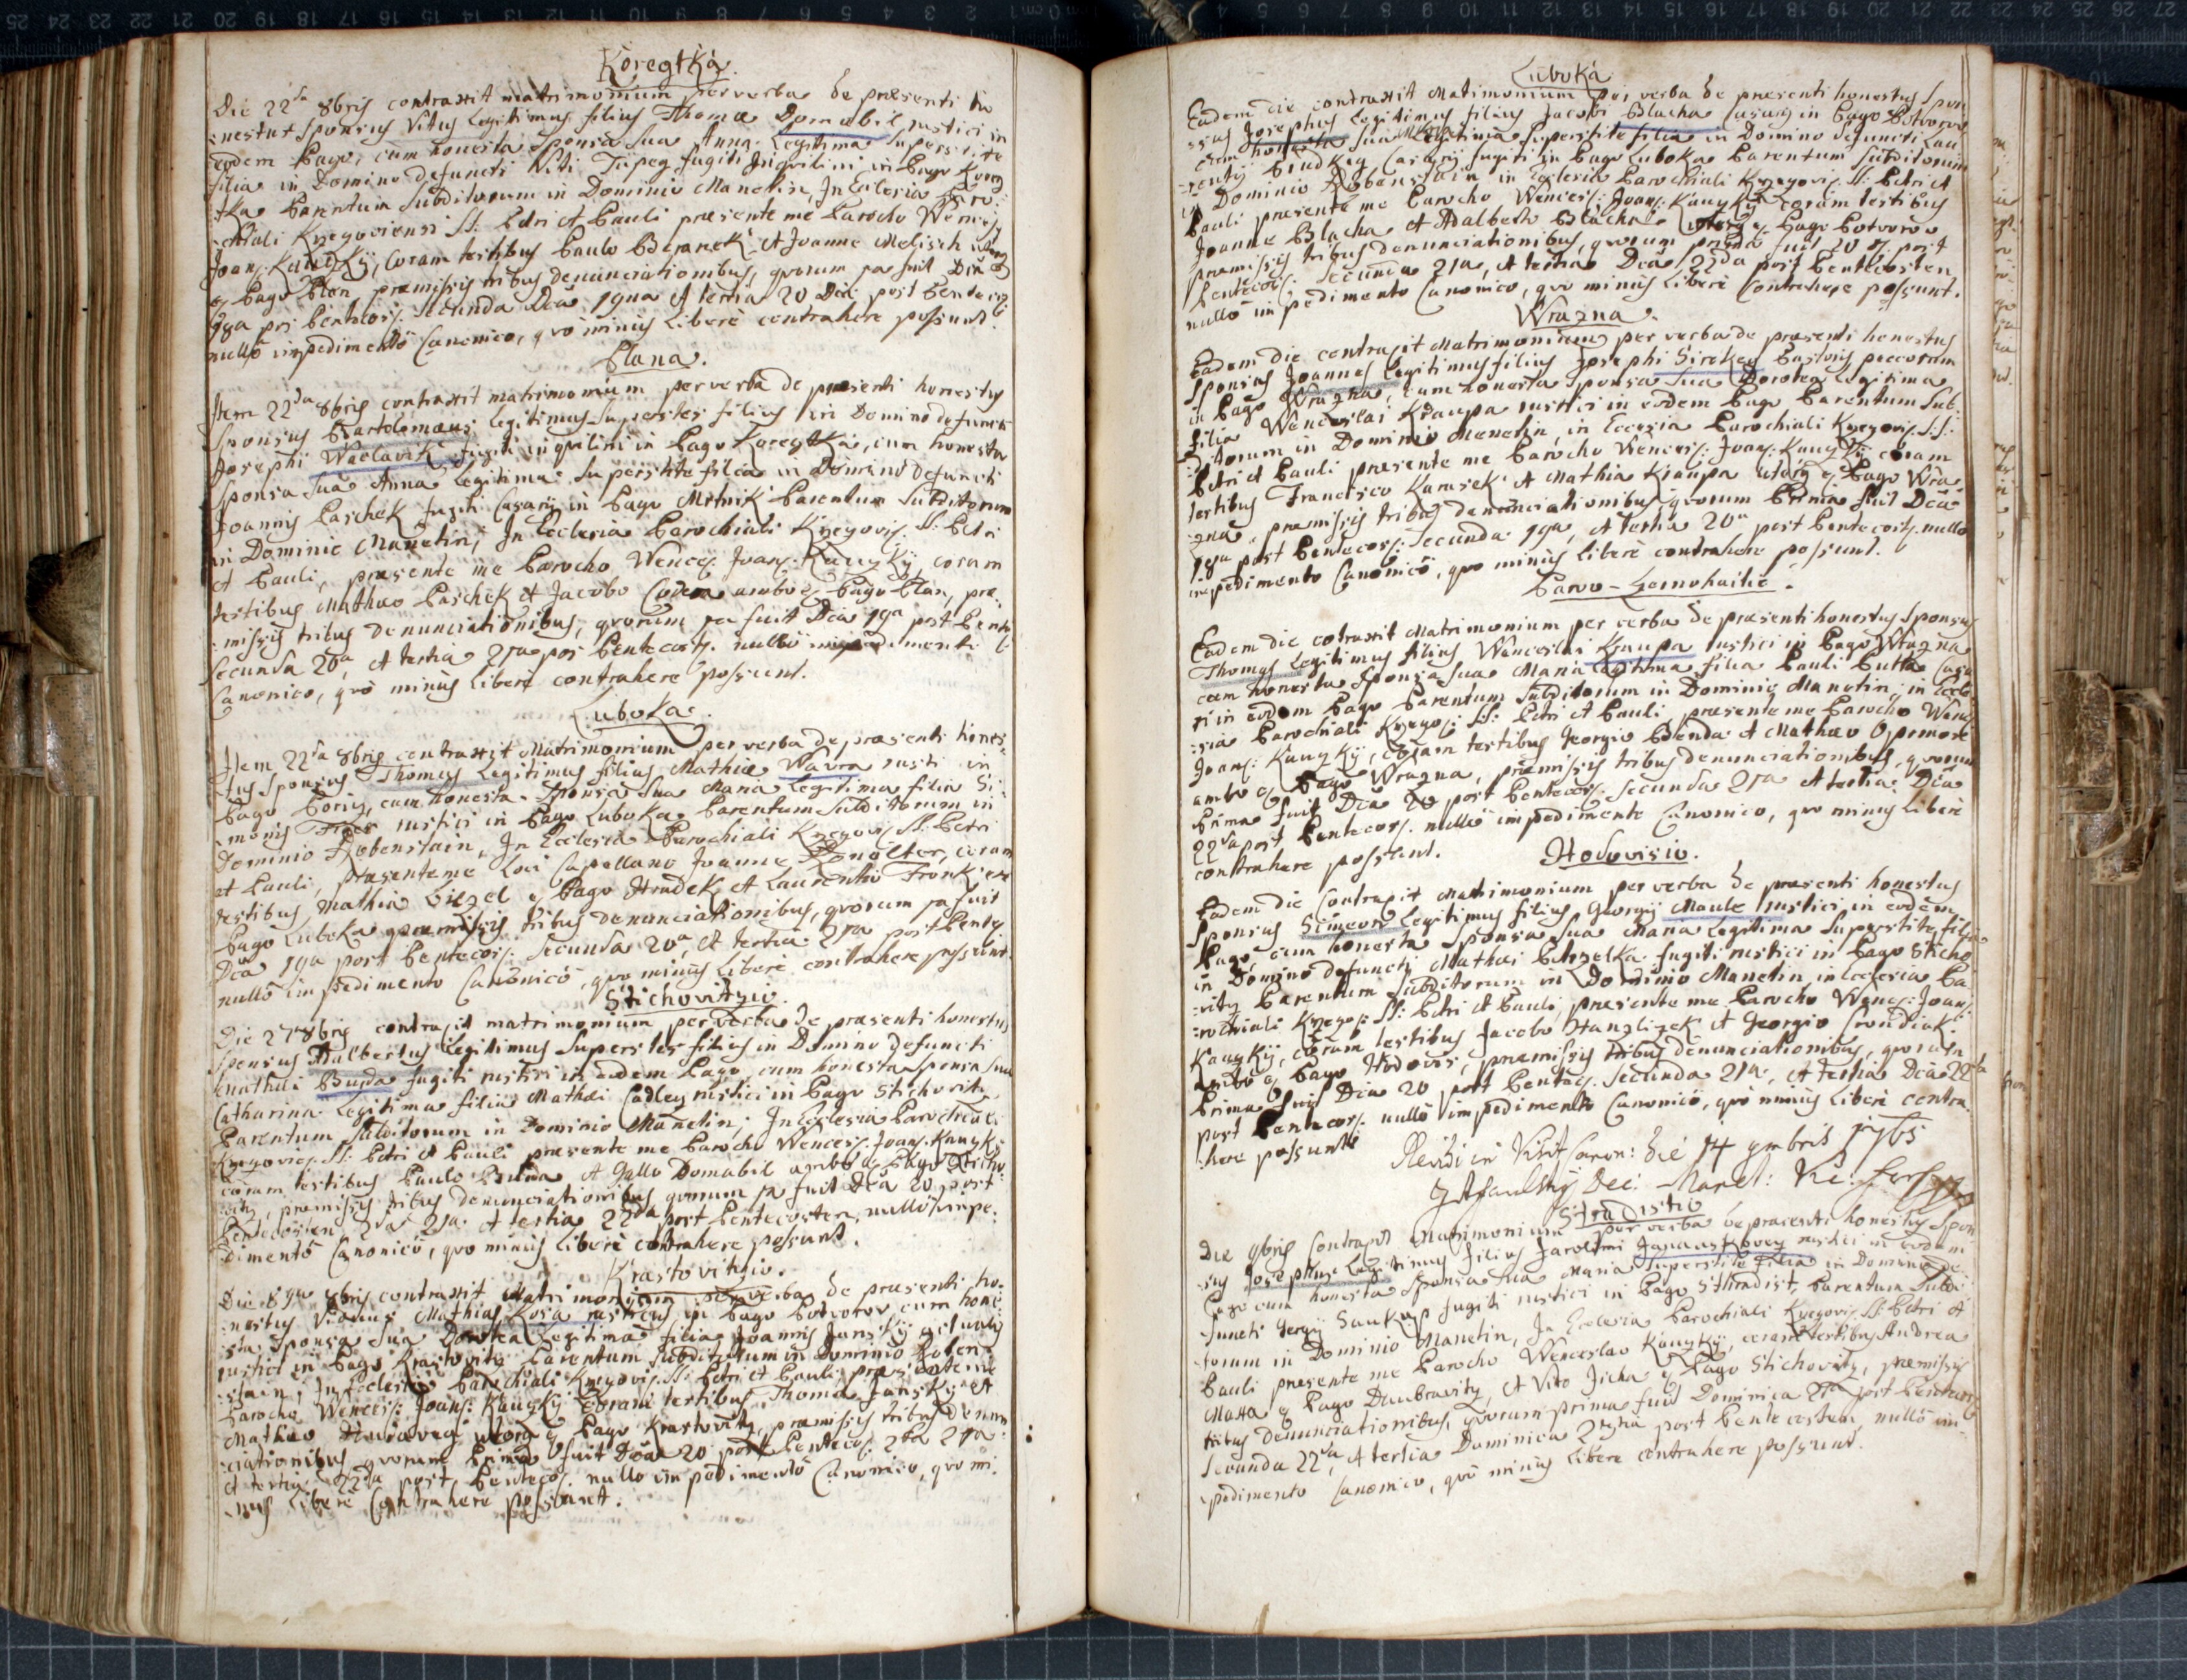 Koregtka.
Die 22da 8bris contraxit matrimonium per verba de praesenti ho
:nestus Sponsus Vitus legitimus filius Thomae Domabil rustici in
eodem Pago, cum honesta Sponsa Sua Anna Legitima Superstite
filia in Domino defuncti Viti Tupeg fugiti Inquilini in Pago Koreg
:tka Parentum Subditorum in Dominio Manetin, In Eclesia Paro
:chiali Kregoviensi SS: Petri et Pauli praesente me Parocho Wences:
Joan: Kauzky, Coram testibus Paulo Beranek et Joanne Melisch
Pago Plan praemissis tribus denunciationibus, quorum 1a fuit Dca
Secunda Dca 19na et tertia 20 Dca post Pentecos:
nullo impedimento Canonico, quo minus Libere contrahere possunt.
Plana.
Item 22da 8bris contraxit matrimonium per verba de praesenti honestus
Sponsus Bartolomaeus legitimus Superstes filius in Domino defuncti
Josephi Waclavik fugiti inquilini in Pago Koregtka, cum honesta
Sponsa Sua Anna legitima Superstite filia in Domino defuncti
Joannis Paschek fugiti Casarij in Pago Mrtnik Parentum Subditorum
in Dominio Manetin, In Ecclesia Parochiali Kregovis: SS: Petri
et Pauli, praesente me Parocho Wences: Joan: Kauzky, coram
testibus Mathaeo Paschek et Jacobo Cudera ambo ex Pago Plan, prae
:missis tribus denunciationibus, quorum 1a fuit Dca 19a post Pente
Secunda 20a, et tertia 21a pos Pentecos: nullo impedimento
Canonico, quo minus libere contrahere possunt.
Luboka.
Item 22da 8bris contraxit Matrimonium per verba de praesenti hones
:tus Sponsus Thomas Legitimus filius Mathiae Wavra rusti in
Pago Boriz, cum honesta Sponsa Sua Maria legitima filia Si
:monis rustici in Pago Luboka Parentum Subditorum in
Dominio Rabenstain, In Ecclesia Parochiali Kregovis SS: Petri
et Pauli, praesente me Loci Capellano Joanne, coram
testibus, Mathia ex Pago Hradek et Laurentio
Pago Luboka praemissis tribus denunciationibus, quorum 1a fuit
Dca 19a post Pentecos: Secunda 20a, et tertia 21a post Pente:
nullo impedimento Canonico, quo minus libere contrahere possunt.
Stichovitzio.
Die 27 8bris contraxit matrimonium per verba de praesenti honestus
Sponsus Adalbertus legitimus Superstes filius in Domino defuncti
Mathaei Bugda fugiti rustici in eodem Pago, cum honesta Sponsa Sua
Catharina legitima filia Mathaei Cadleg rustici in Pago Stichovitz,
Parentum Subditorum in Dominio Manetin, In Eclesia Parochiali
Kregovis: SS: Petri et Pauli praesente me Parocho Wences: Joan: Kauzky
coram testibus Paulo et Gallo Domabil ambo ex Pago Sticho
:vitz, praemissis tribus denunciationibus quorum 1a fuit Dca 20 post
Pentecosten 2da 21a et tertia 22da post Pentecosten, nullo impe:
dimento Canonico, quo minus libere contrahere possunt.
Krastovitzio.
Die contraxit Matrimonium per verba de praesenti ho:
:nestus Viduus Mathias Kosa rusticus in Pago Potvorov cum hone
:sta Sponsa Sua Dorotea legitima filia Joannis Jansky
rustici in Pago Krastovitz Parentum Subditorum in Dominio Raben:
:stain, In Ecclesia Parochiali Kregovis: SS: Petri et Pauli praesente me
Parocho Wences: Joan: Kauzky Coram testibus Thoma Jansky et
Mathaeo ex Pago Krastovitz, praemissis tribus denun
:ciationibus quorum prima fuit Dca 20 post Pentecos: 2da 21a
et tertia 22da post Penteco: nullo impedimento Canonico, quo mi:
:nus libere Contrahere possunt.
Luboka
Eadem die contraxit Matrimonium per verba de praesenti honestus Spon
:sus Josephus legitimus filius Jacobi Blacha Casarij in Pago Potvorov
cum honesta Sua Legitima Superstite filia in Domino defuncti Lau
:rentij Hudkeg Casarij fugiti in Pago Luboka Parentum Subditorum
in Dominio Rabenstain in Ecclesia Parochiali Kregovis: SS: Petri et
Pauli praesente me Parocho Wences: Joan: Kauzky coram testibus
Joanne Blacha et Adalberto Blacha ex Pago Potvorov
praemissis tribus denunciationibus, quorum prima fuit 20 post
Pentecos: Secunda 21a, et tertia Dca 22da post Pentecosten
nullo impedimento Canonico, quo minus Libere Contrahere possunt.
Wrazna.
Eadem die contraxit Matrimonium per verba de praesenti honestus
Sponsus Joannes Legitimus filius Josephi Sirokey Pastoris pecorum
in Pago Wrazna, cum honesta Sponsa Sua Dorotea Legitima
filia Wenceslai Kraupa rustici in eodem Pago Parentum Sub:
:ditorum in Dominio Manetin, in Eccesia Parochiali Kregovis: SS:
Petri et Pauli praesente me Parocho Wences: Joan: Kauzky coram
testibus Francisco Karasek et Mathia Kraupa ex Pago Wra
:zna, praemissis tribus denunciationibus, quorum Prima fuit Dca
19a post Pentecos: Secunda 19a, et tertia 20a post Pentecos: nullo
impedimento Canonico, quo minus libere contrahere possunt.
Parvo-
Eadem die cotraxit Matrimonium per verba de praesenti honestus Sponsus
Thomas Legitimus filius Wenceslai Kraupa rustici in Pago Wrazna
cum honesta Sponsa Sua Maria Legitima filia Pauli Butta Casa
:ri in eodem Pago Parentum Subditorum in Dominio Manetin, in Ecle
:sia Parochiali Kregos: SS: Petri et Pauli praesente me Parocho Wenc
Joan: Kauzky, coram testibus Georgio Benda et Mathaeo
ambo ex Pago Wrazna, praemissis tribus denunciationibus, quorum
Prima fuit Dca 20 post Pentecos: Secunda 21a et tertia Dca
22da post Pentecos: nullo impedimento Canonico, quo minus libere
contrahere possunt.
Hodovisio.
Eadem die Contraxit Matrimonium per verba de praesenti honestus
Sponsus Simeon legitimus filius Georgij Maule rustici in eodem
Pago, cum honesta Sponsa Sua Maria Legitima Superstite filia
in Domino defuncti Mathaei fugiti rustici in Pago Sticho
:vitz Parentum Subditorum in Dominio Manetin, in Eclesia Pa
:rochiali Krego: SS: Petri et Pauli, praesente me Parocho Wenc: Joan:
Kauzky, coram testibus Jacobo Hanzlizek et Georgio
ambo ex Pago Hodovis, praemissis tribus denunciationibus, quorum
Prima fuit Dca 20 post Pentec: Secunda 21a, et Tertia Dca 22da
post Pentecos: nullo impedimento Canonico, quo minus Libere contra
:here possunt
Revidi in Visit Canon: die 14 9mbris 1765
Dec: Manet: Vic:
Stradistio
Die 9bris Contraxit Matrimonium per verba de praesenti honestus Spon
:sus Josephus legitimus filius Jarolimi rustici in eodem
Pago cum honesta Sponsa Sua Maria Superstite filia in Domino de
:functi Georgij Saukup fugiti rustici in Pago Sthradist, Parentum Subdi
:torum in Dominio Manetin, In Ecclesia Parochiali Kregovis SS: Petri et
Pauli praesente me Parocho Wenceslao Kauzky, coram testibus Andrea
Maxa ex Pago Daubravitz, et Vito Jicha ex Pago Stichovitz, praemissis
tribus denunciationibus, quorum prima fuit Dominica 21a post Pentecos:
Secunda 22da, et tertia Dominica 23tia post Pentecosten, nullo im
:pedimento Canonico, quo minus libere contrahere possunt.